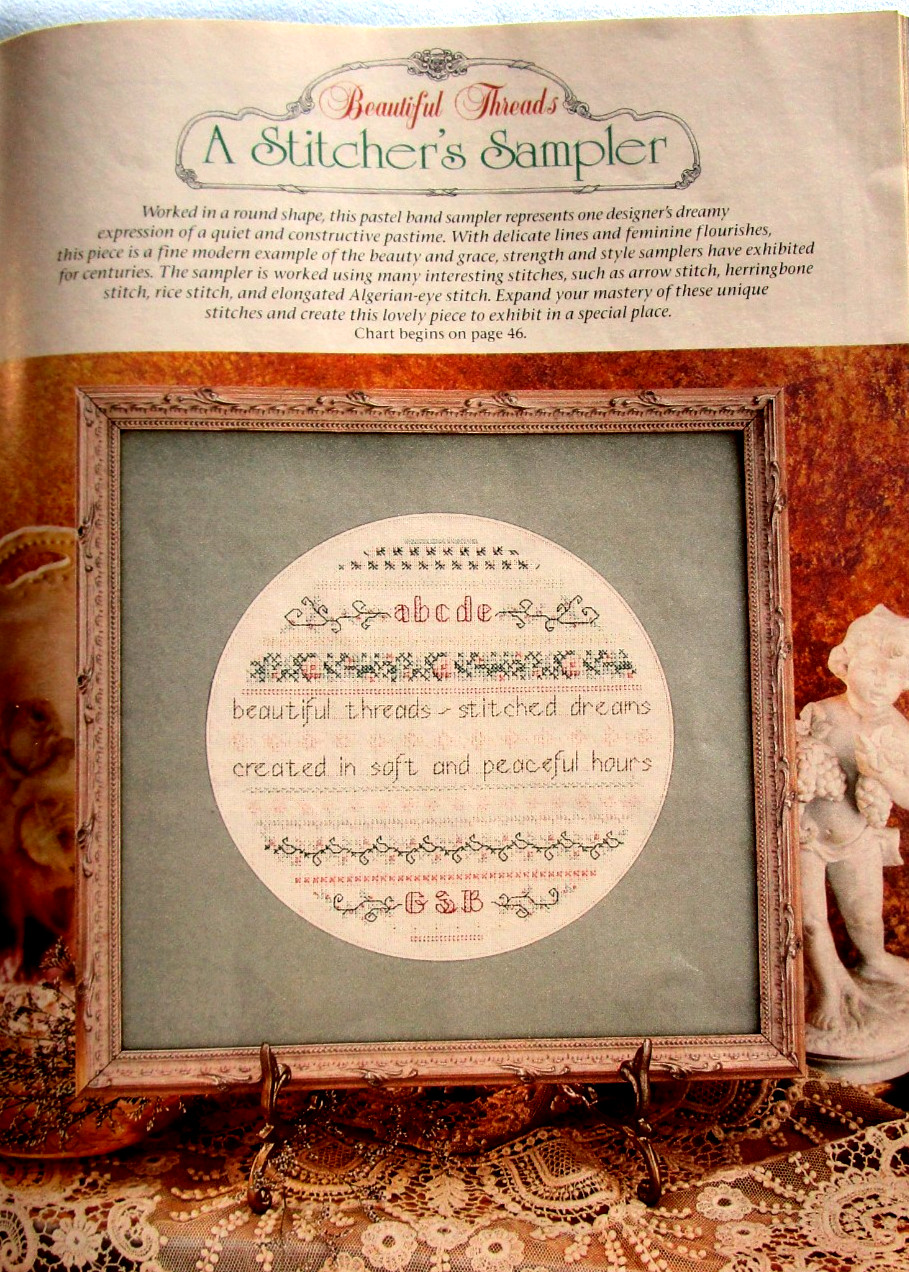 Beautiful Threads
A Stitcher's Sampler
Worked in a round shape, this pastel band sampler represents one designer's dreamy
expression of a quiet and constructive pastime. With delicate lines and feminine flourishes,
this piece is a fine modern example of the beauty and grace, strength and style samplers have exhibited
for centuries. The sampler is worked using many interesting stitches, such as arrow stitch, herringbone
stitch, rice stitch, and elongated Algerian-eye stitch. Expand your mastery of these unique
stitches and create this lovely piece to exhibit in a special place.
Chart begins on page 46.
abcde
beautiful threads ~ stitched dreams
created in soft and peaceful hours
GSB